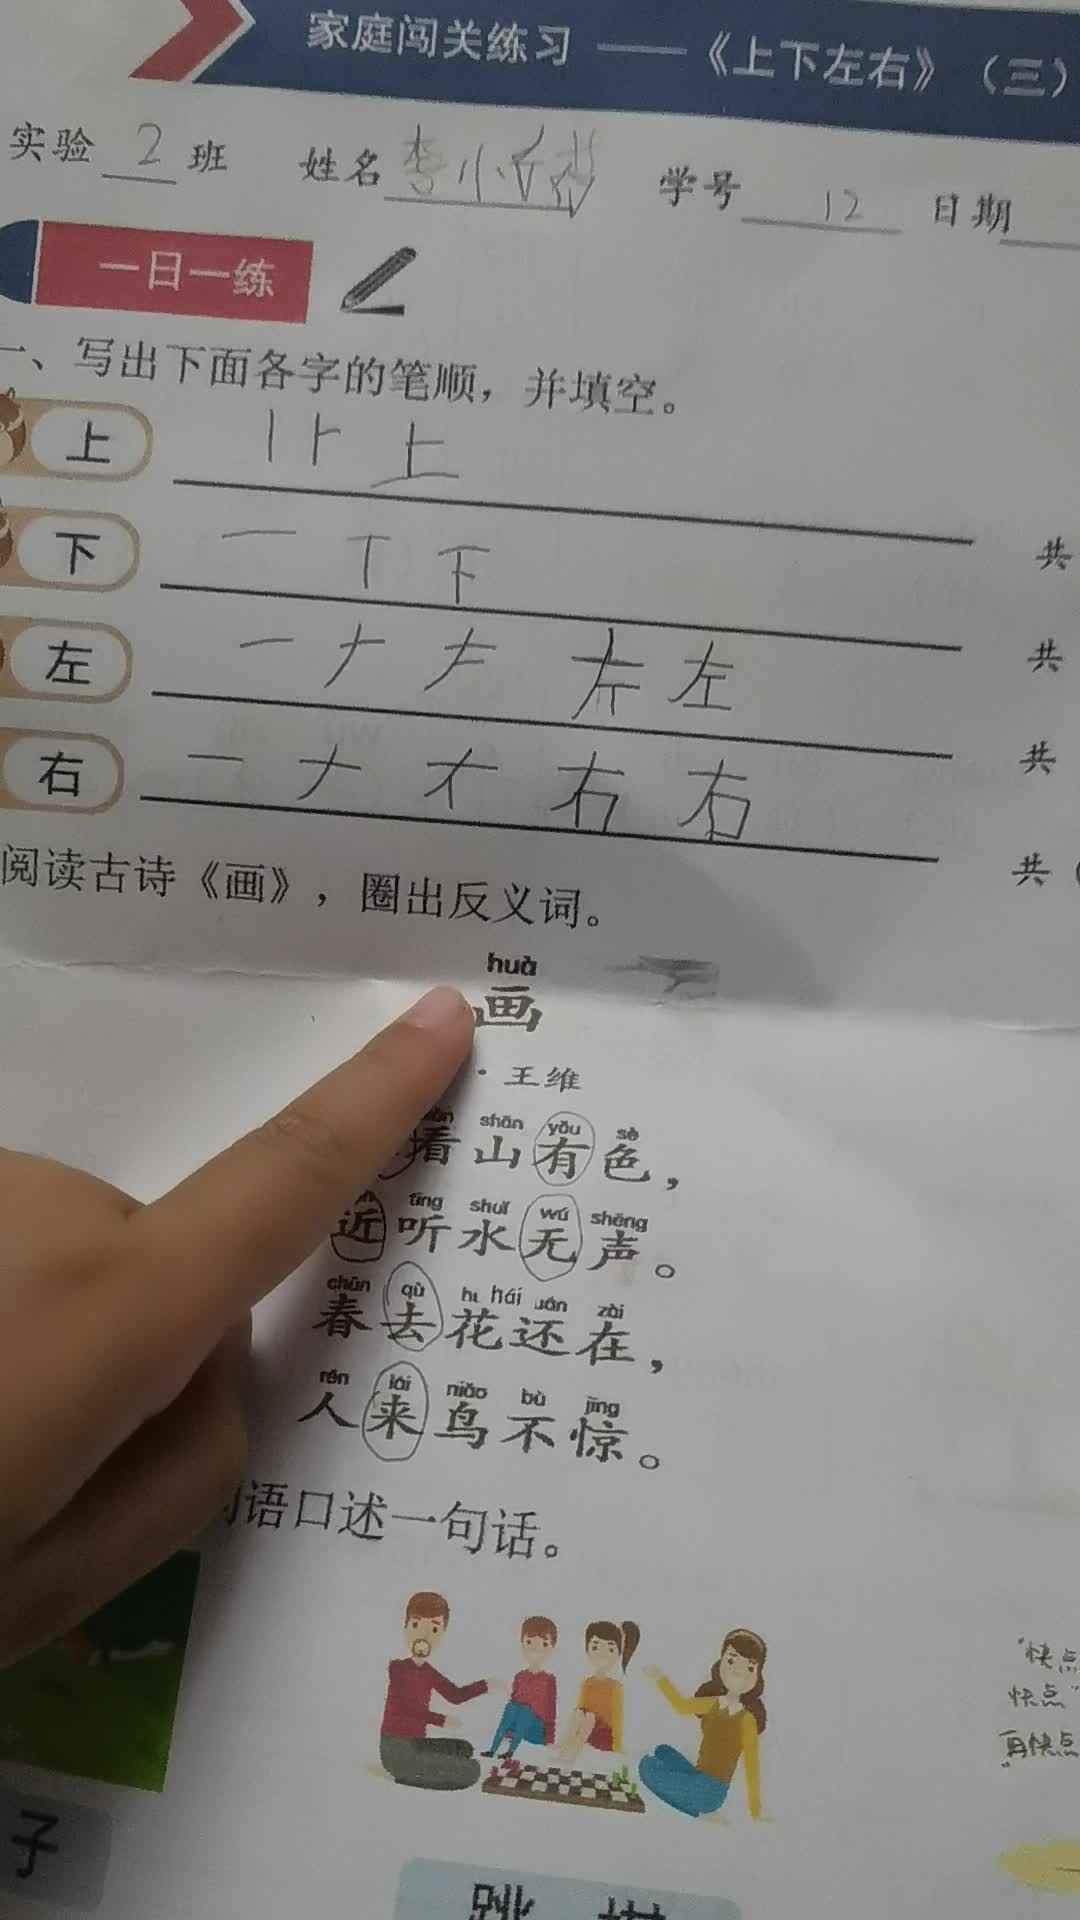 家庭闯关练习 ——《上下左右》（三）
实验 2 班 姓名 李小 学号 12 日期
一日一练
一、写出下面各字的笔顺，并填空。
上 丨 ⺊ 上 共
下 一 丅 下 共
左 一 𠂇 左 共
右 一 𠂇 右 右 共
阅读古诗《画》，圈出反义词。
huà
画
· 王维
shān yǒu sè
看山有色，
tīng shuǐ wú shēng
近听水无声。
chūn qù hái zài
春去花还在，
rén lái niǎo bù jīng
人来鸟不惊。
语口述一句话。
"快点
快点"
再快点
子
跳